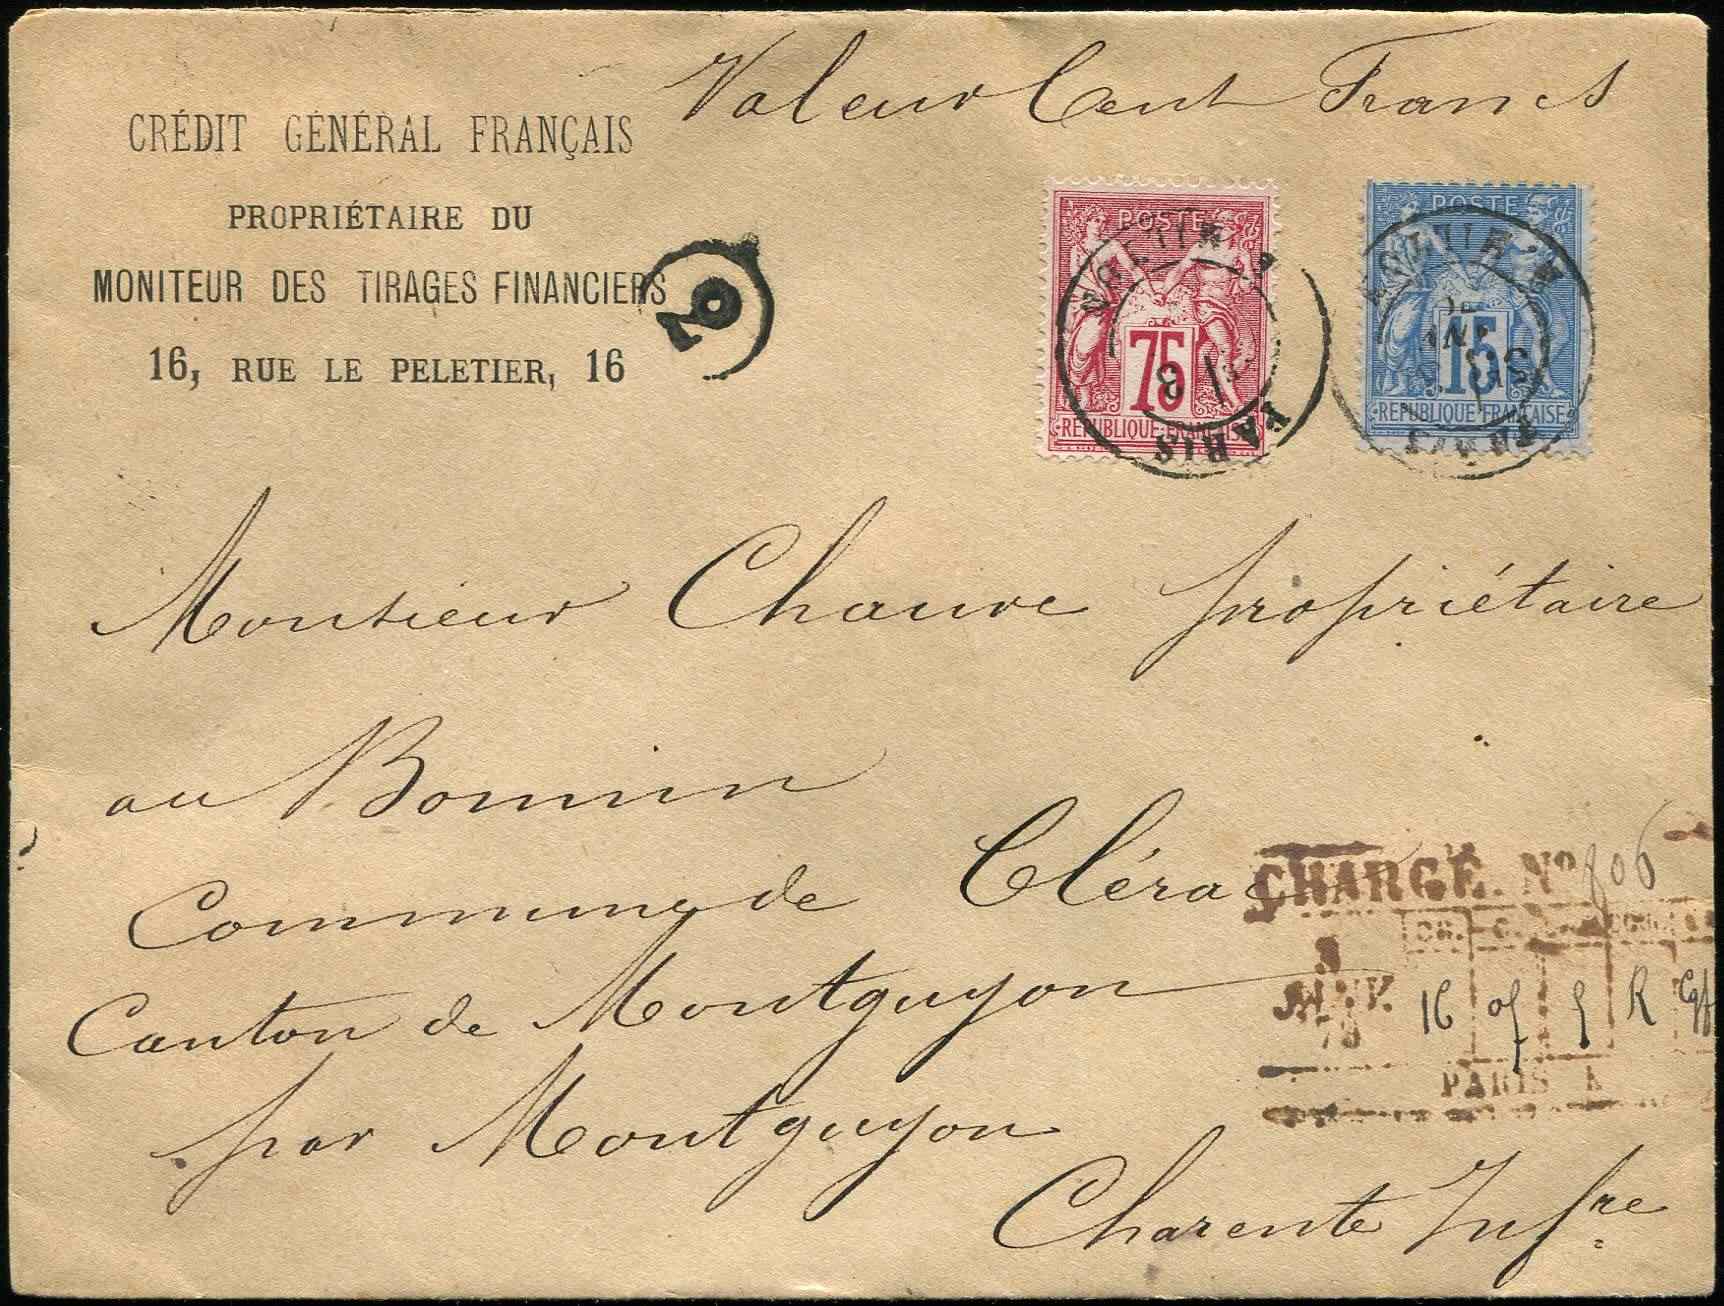 Valeur Cent Francs
CRÉDIT GÉNÉRAL FRANÇAIS
PROPRIÉTAIRE DU
MONITEUR DES TIRAGES FINANCIERS
16, RUE LE PELETIER, 16
POSTE
75
REPUBLIQUE FRANÇAISE
PARIS
POSTE
15
REPUBLIQUE FRANÇAISE
Monsieur Chauve propriétaire
au Bonnin
Commune de Clérac
Canton de Montguyon
par Montguyon
Charente Infre
CHARGÉ. No 806
JANV.
16
PARIS